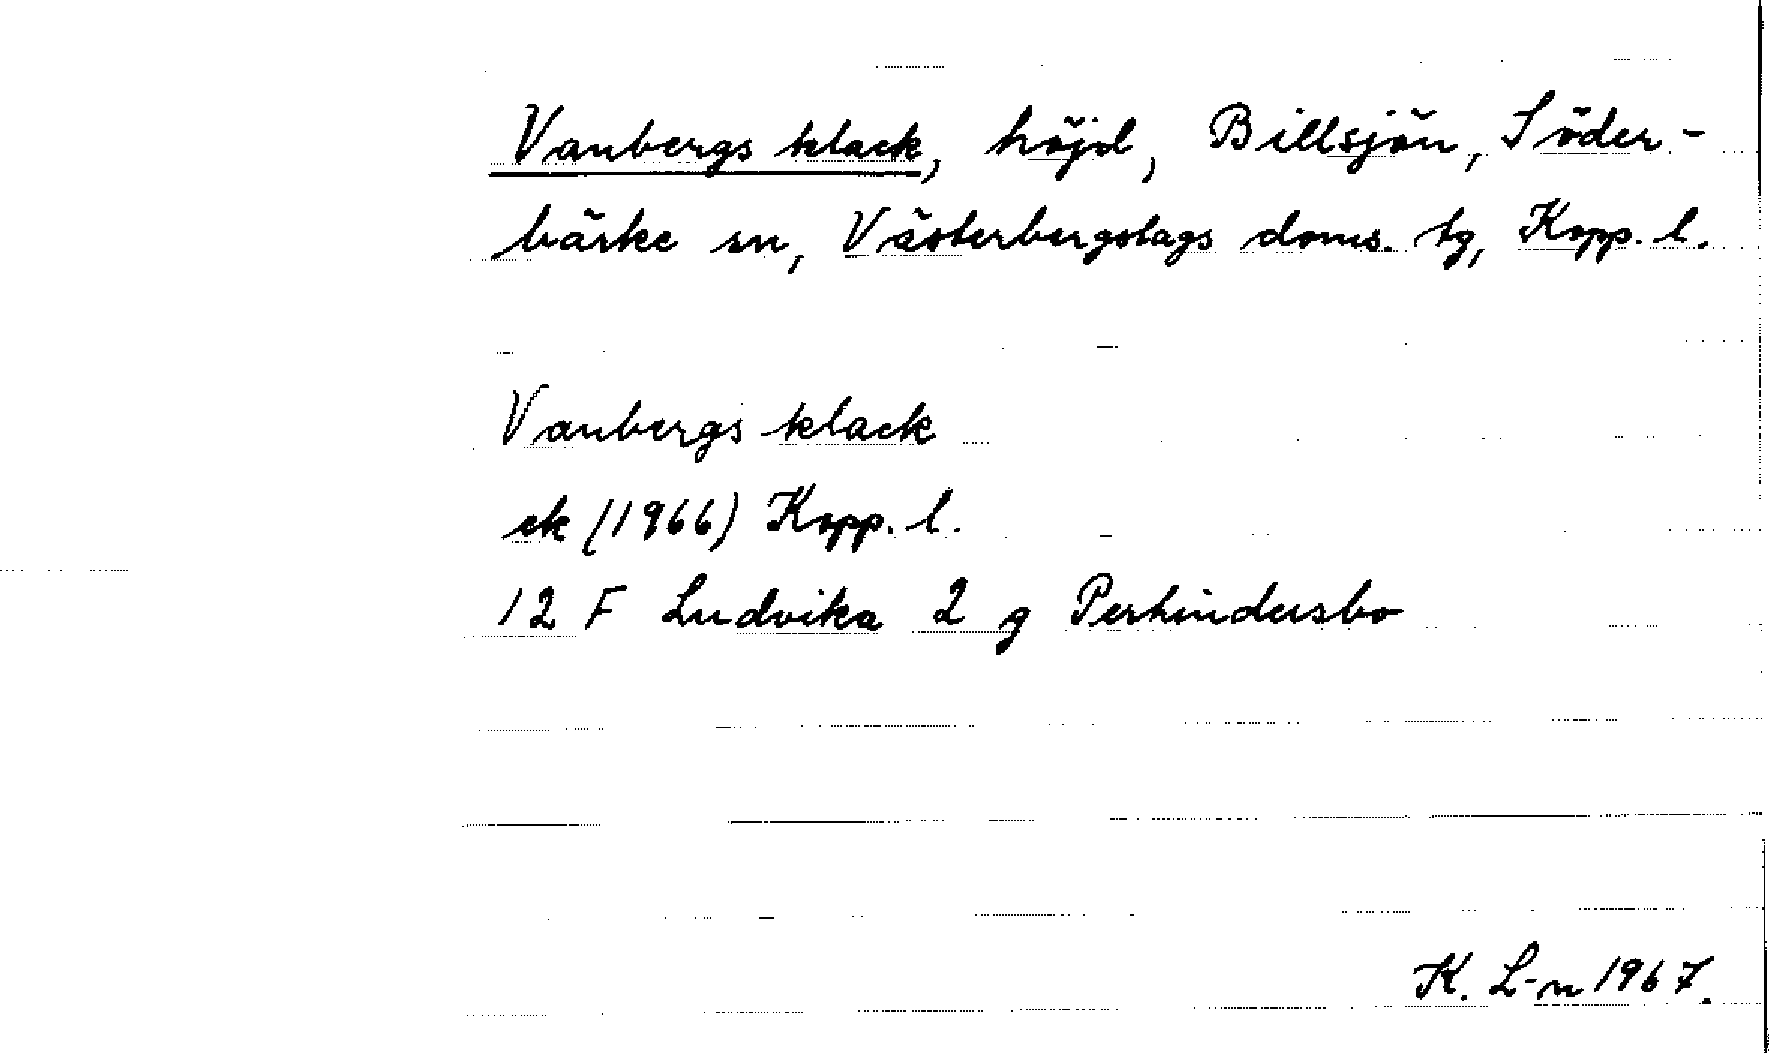 Vanbergs klack, höjd, Billsjön, Söder-
bärke sn, Västerbergslags doms. tg, Kopp. l.
Vanbergs klack
ek (1966) Kopp. l.
12 F Ludvika 2 g Perhindersbo
K. L-n 1967.